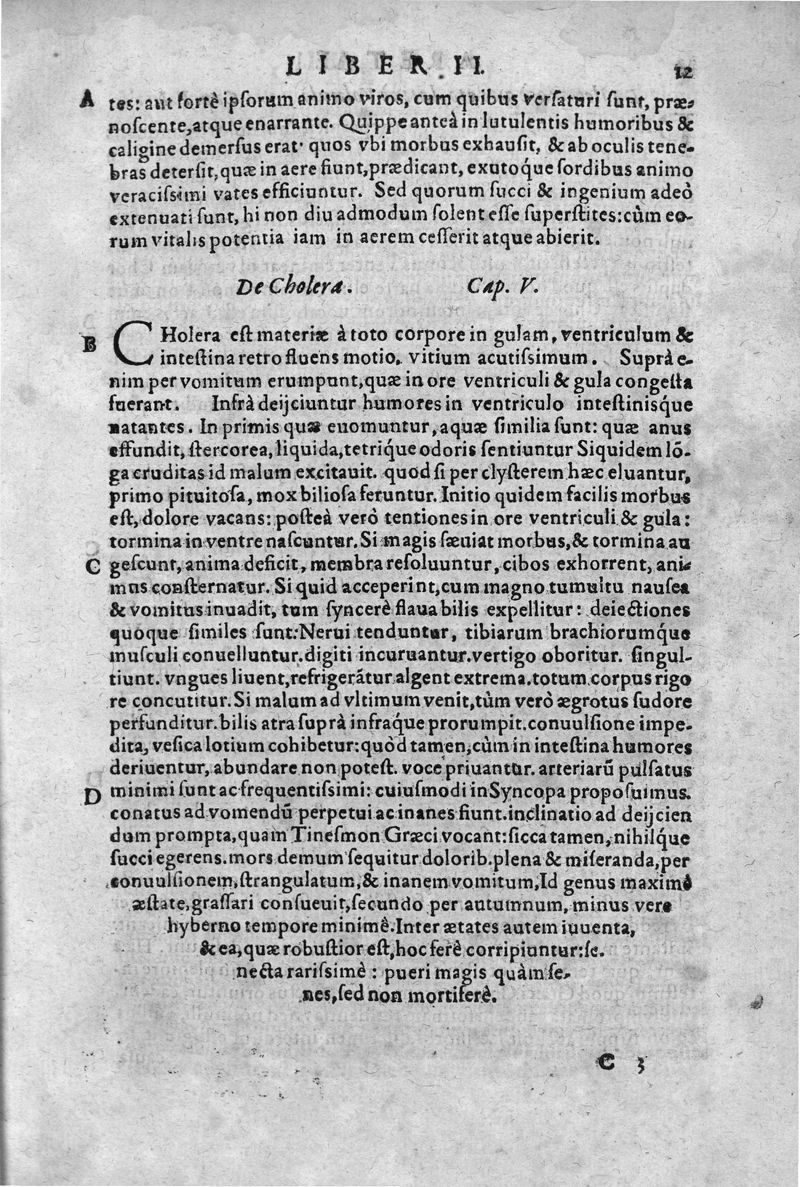 LIBER II.
12
A tes: aut fortè ipsorum animo viros, cum quibus versaturi sunt, præ-
noscente, atque enarrante. Quippe anteà in lutulentis humoribus &
caligine demersus erat· quos vbi morbus exhausit, & ab oculis tene-
bras detersit, quæ in aere fiunt, prædicant, exutoq́ue sordibus animo
veracissimi vates efficiuntur. Sed quorum succi & ingenium adeò
extenuati sunt, hi non diu admodum solent esse superstites: cùm eo-
rum vitalis potentia iam in aerem cesserit atque abierit.
De Cholera. Cap. V.
B CHolera est materiæ à toto corpore in gulam, ventriculum &
intestina retro fluens motio. vitium acutissimum. Suprà e-
nim per vomitum erumpunt, quæ in ore ventriculi & gula congesta
fuerant. Infrà deijciuntur humores in ventriculo intestinisque
natantes. In primis quæ euomuntur, aquæ similia sunt: quæ anus
effundit, stercorea, liquida, tetrique odoris sentiuntur Siquidem lō-
ga cruditas id malum excitauit. quod si per clysterem hæc eluantur,
primo pituitosa, mox biliosa feruntur. Initio quidem facilis morbus
est, dolore vacans: posteà verò tentiones in ore ventriculi & gula:
tormina in ventre nascuntur. Si magis sæuiat morbus, & tormina au
C gescunt, anima deficit, membra resoluuntur, cibos exhorrent, ani-
mus consternatur. Si quid acceperint, cum magno tumultu nausea
& vomitus inuadit, tum syncerè flaua bilis expellitur: deiectiones
quoque similes sunt: Nerui tenduntur, tibiarum brachiorumq́ue
musculi conuelluntur. digiti incuruantur. vertigo oboritur. singul-
tiunt. vngues liuent, refrigerātur algent extrema. totum corpus rigo
re concutitur. Si malum ad vltimum venit, tùm verò ægrotus sudore
perfunditur. bilis atra suprà infraque prorumpit. conuulsione impe-
dita, vesica lotium cohibetur: quòd tamen, cùm in intestina humores
deriuentur, abundare non potest. voce priuantur. arteriarū pulsatus
D minimi sunt ac frequentissimi: cuiusmodi in Syncopa proposuimus.
conatus ad vomendū perpetui ac inanes fiunt. inclinatio ad deijcien
dum prompta, quam Tinesmon Græci vocant: sicca tamen, nihilq́ue
succi egerens. mors demum sequitur dolorib. plena & miseranda, per
conuulsionem, strangulatum, & inanem vomitum, Id genus maximè
æstate, grassari consueuit, secundo per autumnum, minus vere
hyberno tempore minimè. Inter ætates autem iuuenta,
& ea, quæ robustior est, hoc ferè corripiuntur: se-
necta rarissimè: pueri magis quàm se-
nes, sed non mortiferè.
C 3